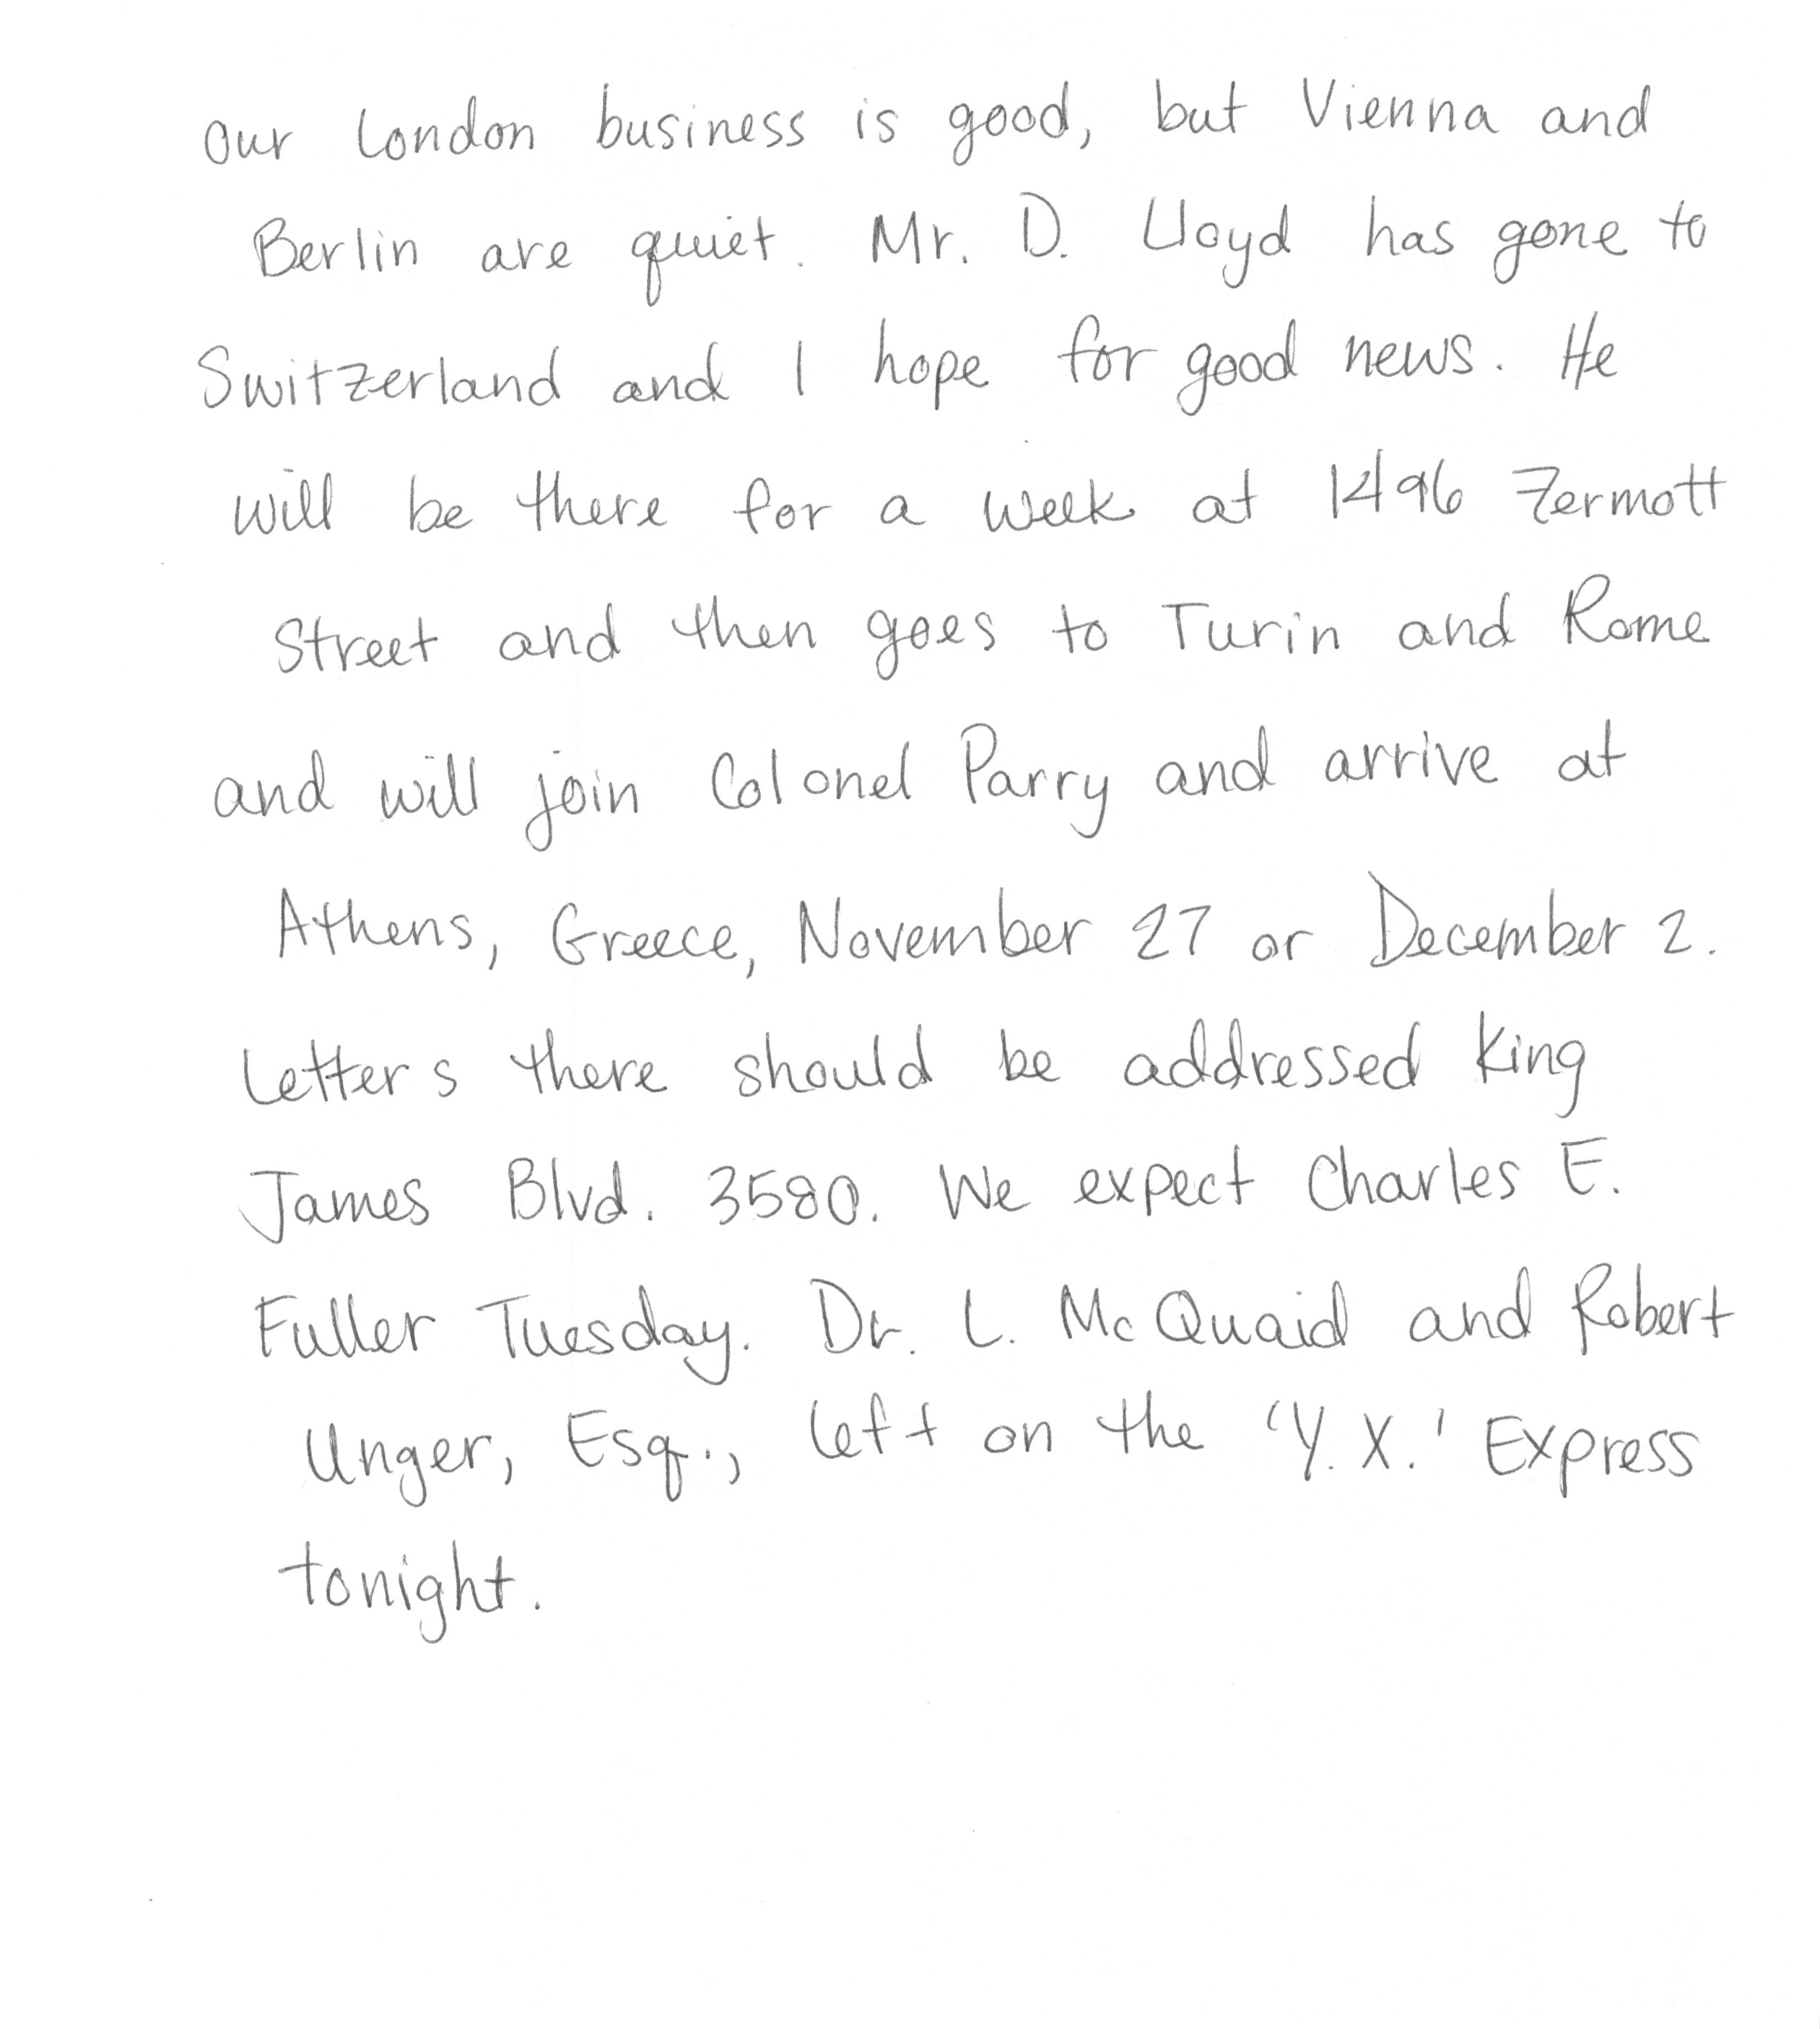 Our London business is good, but Vienna and
Berlin are quiet. Mr. D. Lloyd has gone to
Switzerland and I hope for good news. He
will be there for a week at 1496 Zermott
Street and then goes to Turin and Rome
and will join Colonel Parry and arrive at
Athens, Greece, November 27 or December 2.
Letters there should be addressed King
James Blvd. 3580. We expect Charles E.
Fuller Tuesday. Dr. L. McQuaid and Robert
Unger, Esq., left on the 'Y.X.' Express
tonight.